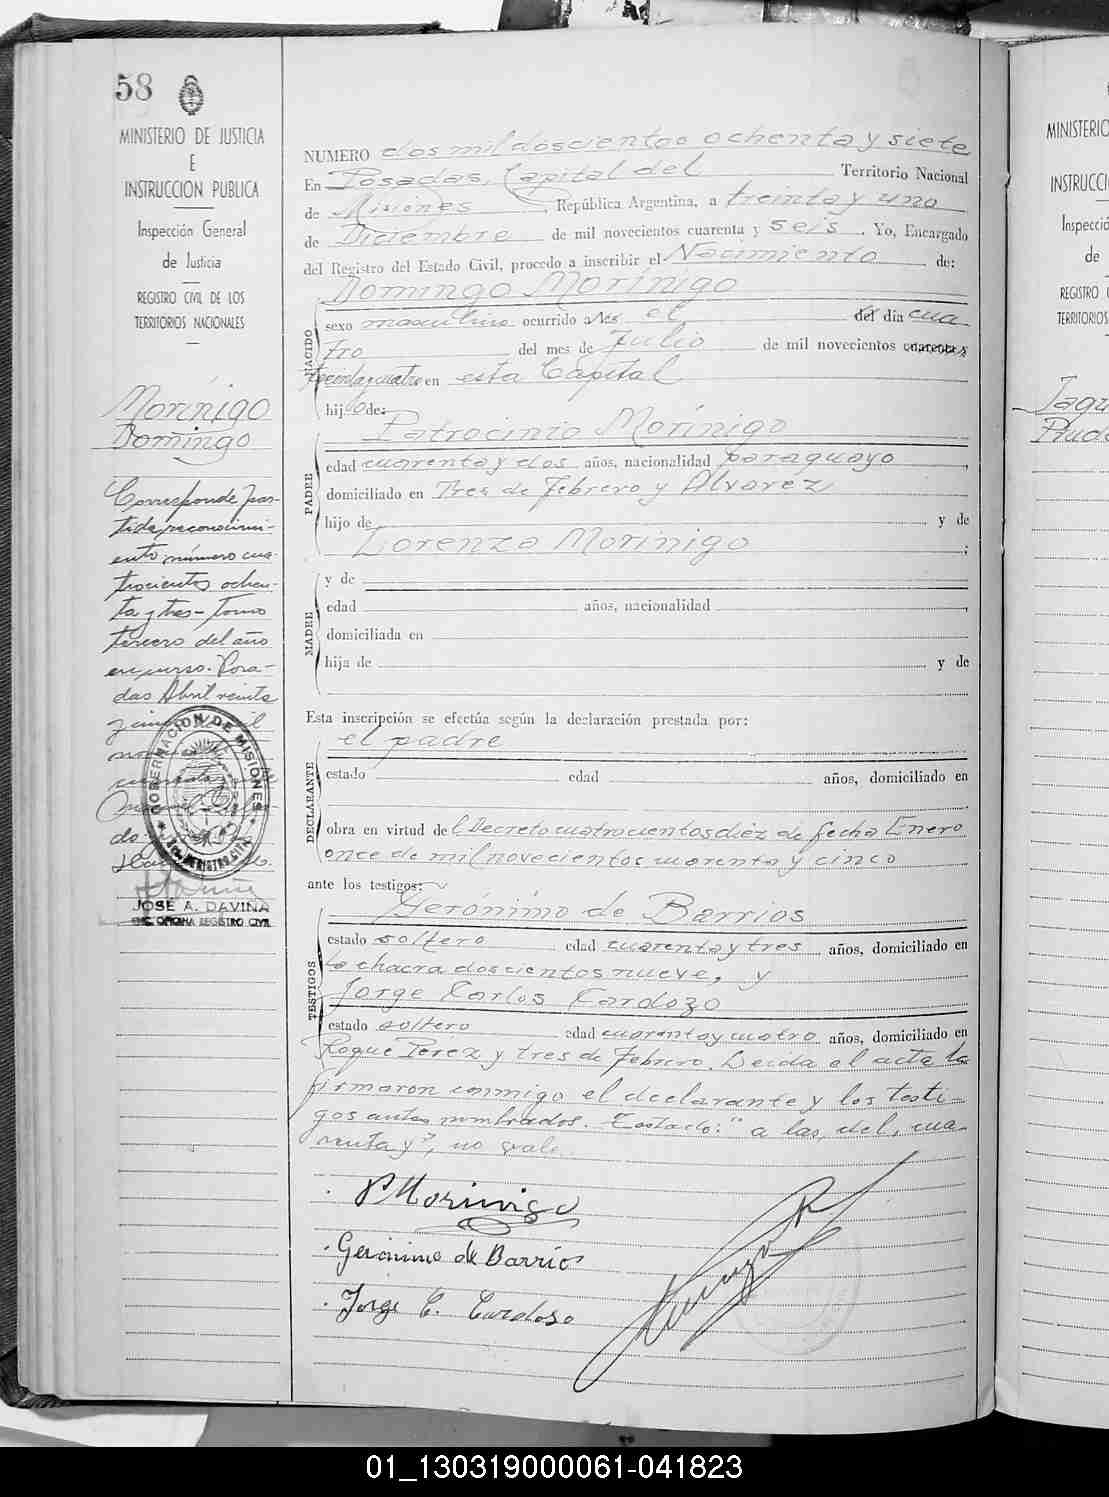 58
MINISTERIO DE JUSTICIA
E
INSTRUCCION PUBLICA
Inspección General
de Justicia
REGISTRO CIVIL DE LOS
TERRITORIOS NACIONALES
Morínigo
Domingo
Corresponde par-
tida reconocimi-
ento número cua-
trocientos ochen-
ta y tres - Tomo
tercero del año
en curso. Posa-
das Abril veinte
GOBERNACION DE MISIONES
JOSE A. DAVIÑA
ENC. OFICINA REGISTRO CIVIL
NUMERO dos mil doscientos ochenta y siete
En Posadas, Capital del Territorio Nacional
de Misiones, República Argentina, a treinta y uno
de Diciembre de mil novecientos cuarenta y seis. Yo, Encargado
del Registro del Estado Civil, procedo a inscribir el Nacimiento de:
Domingo Morínigo
NACIDO
sexo masculino ocurrido a las el del día cua
tro del mes de Julio de mil novecientos cuarenta y
treinta y cuatro en esta Capital
hijo de:
Patrocinio Morínigo
PADRE
edad cuarenta y dos años, nacionalidad paraguayo,
domiciliado en Tres de Febrero y Alvarez
hijo de y de
Lorenza Morínigo;
MADRE
y de
edad años, nacionalidad
domiciliada en
hija de y de
Esta inscripción se efectúa según la declaración prestada por:
el padre
DECLARANTE
estado edad años, domiciliado en
obra en virtud del Decreto cuatrocientos diez de fecha Enero
once de mil novecientos cuarenta y cinco
ante los testigos:
Gerónimo de Barrios
TESTIGOS
estado soltero edad cuarenta y tres años, domiciliado en
la chacra doscientos nueve, y
Jorge Carlos Cardozo
estado soltero edad cuarenta y cuatro años, domiciliado en
Roque Perez y tres de Febrero. Leida el acta la
firmaron conmigo el declarante y los testi-
gos antes nombrados. Testado: "a las, del, cua-
renta y", no vale.
P Morinigo
Gerónimo de Barrios
Jorge C. Cardoso
MINISTERIO
INSTRUCCI
Inspecció
de
REGISTRO
TERRITORIOS
01_130319000061-041823